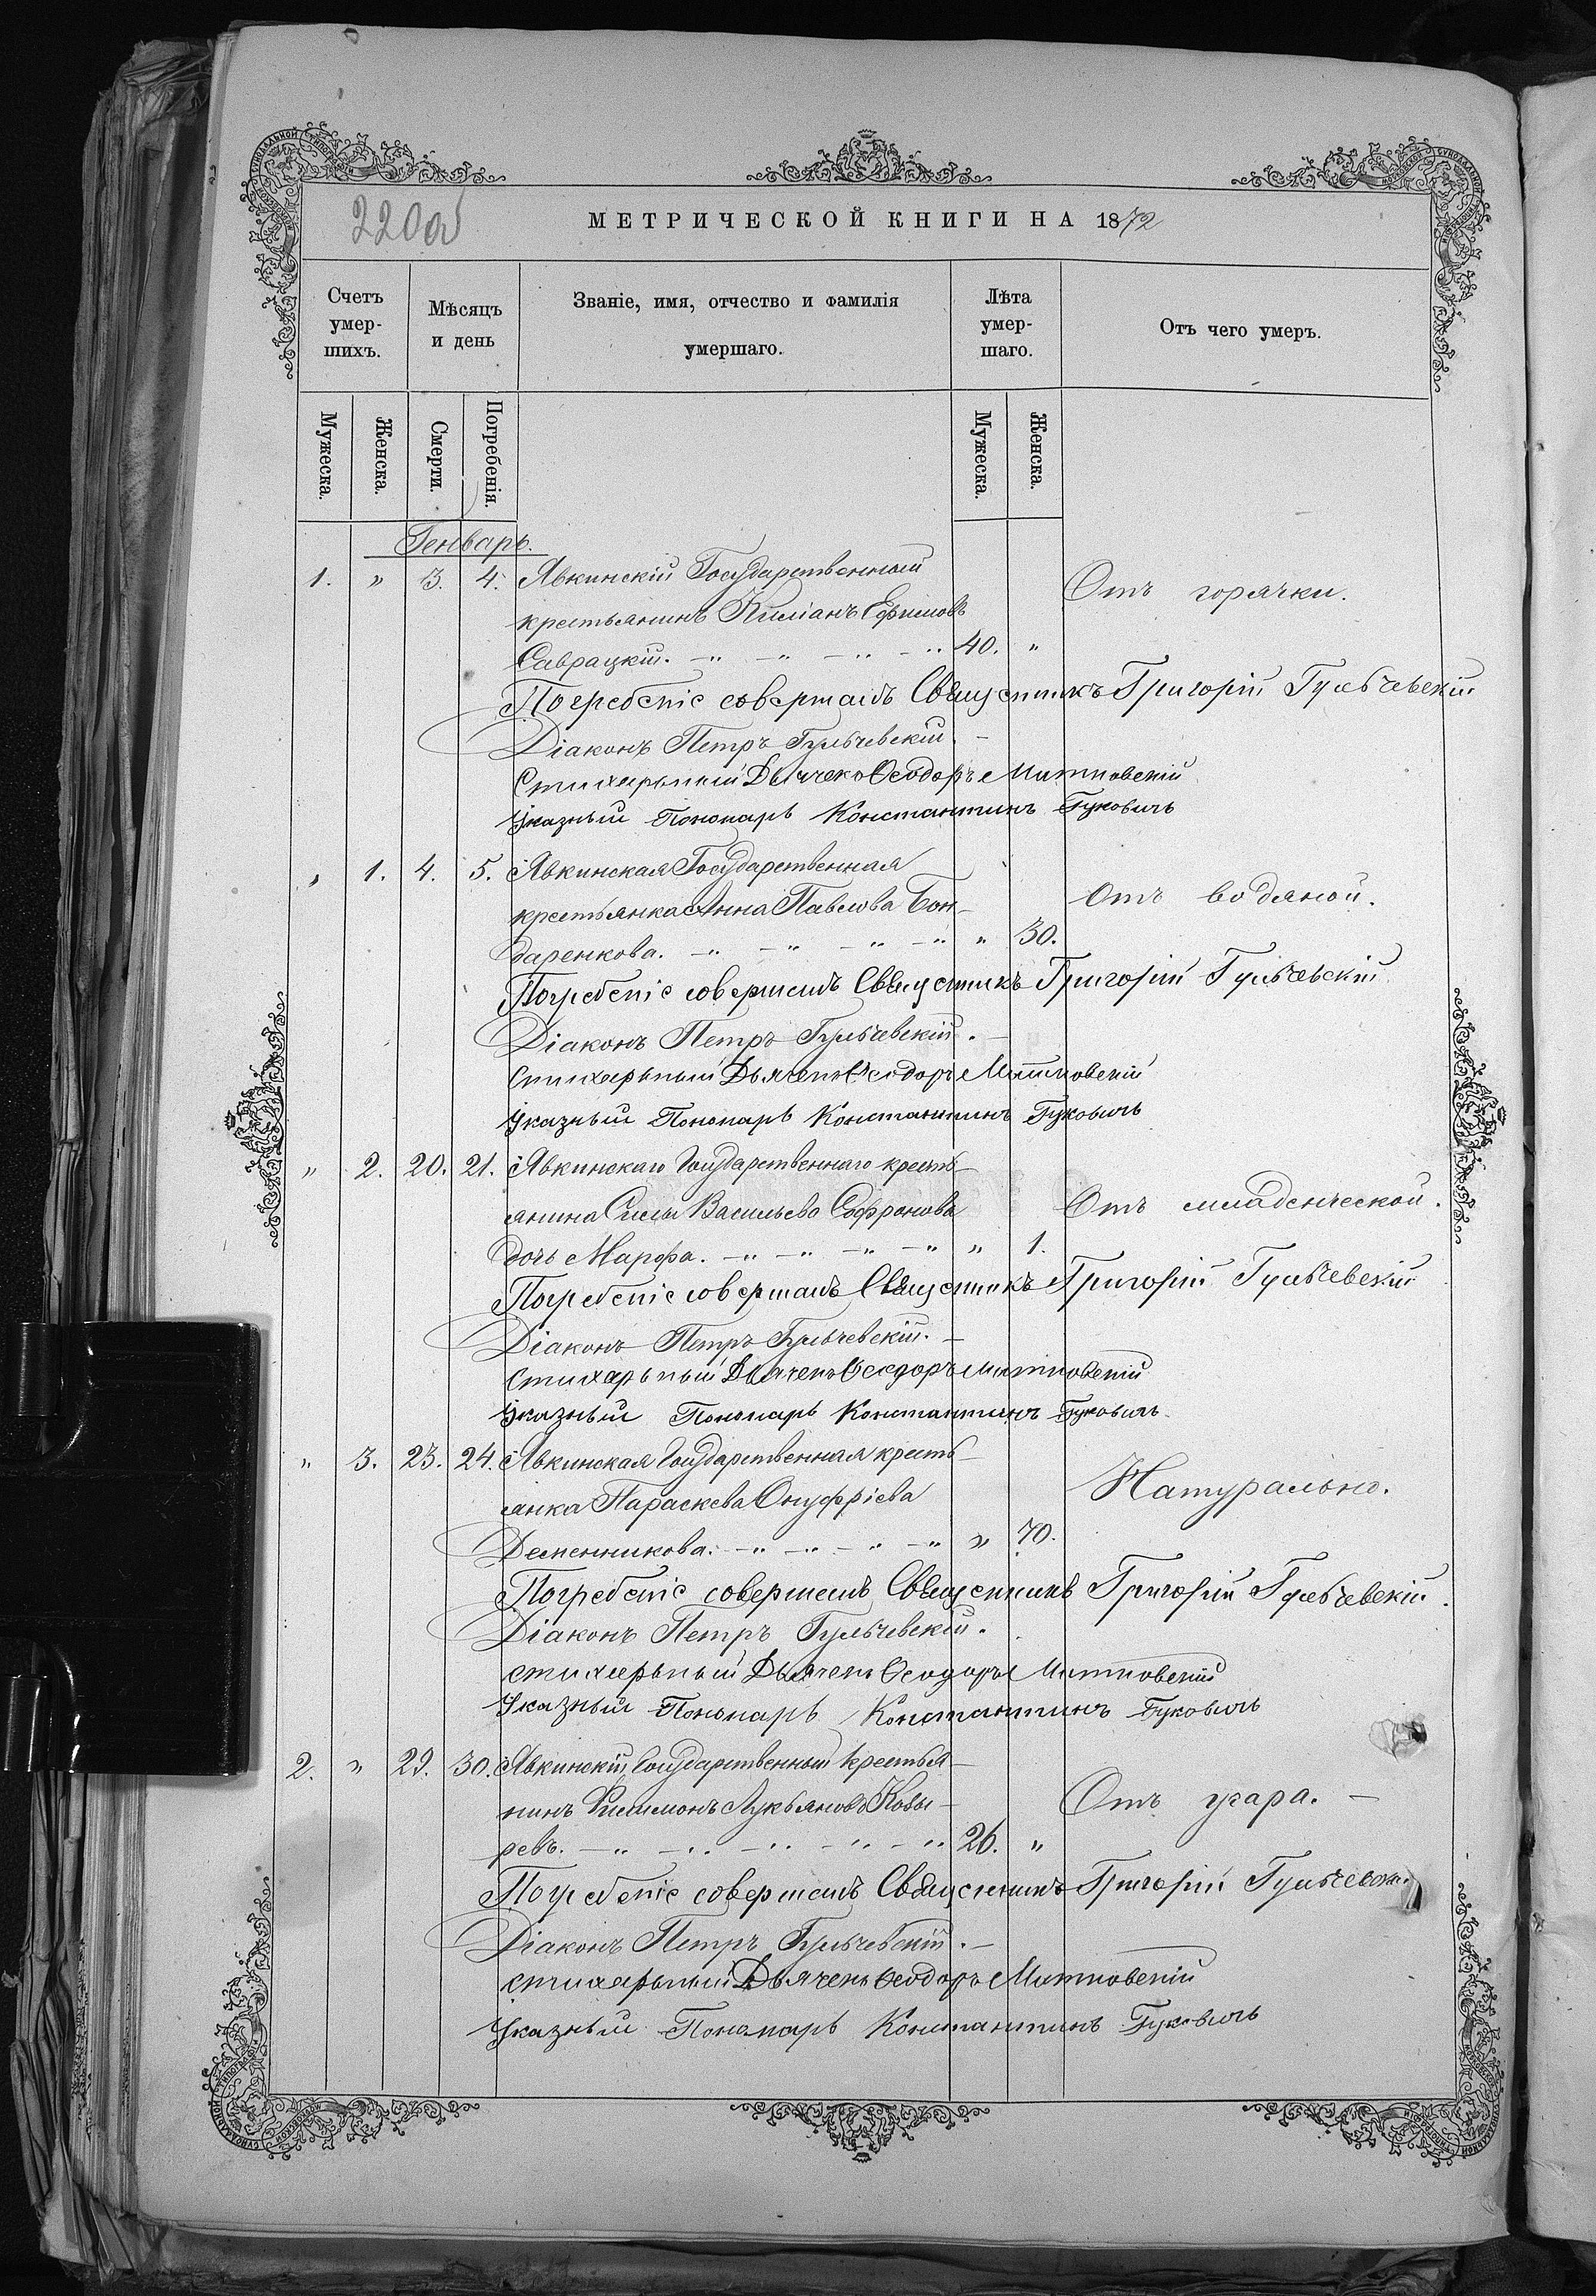 220об
МЕТРИЧЕСКОЙ КНИГИ НА 1872
Счетъ умер-шихъ.
Мѣсяцъ и день
Званіе, имя, отчество и фамилія умершаго.
Лѣта умер-шаго.
Отъ чего умеръ.
Мужеска.
Женска.
Смерти.
Погребенія.
Мужеска.
Женска.
Генварь.
1. " 3. 4. Явкинскій Государственный
Отъ горячки.
крестьянинъ Киліанъ Ефимовъ
Саврацкій. 40. "
Погребеніе совершалъ Священникъ Григорій Гульчевскій
Діаконъ Петръ Гульчевскій.
Стихарный Дьячекъ Ѳеодоръ Митковскій
Указный Пономарь Константинъ Гукович
" 1. 4. 5. Явкинская Государственная
крестьянка Анна Павлова Бон-
Отъ водяной.
даренкова. " 30.
Погребеніе совершалъ Священникъ Григорій Гульчевскій
Діаконъ Петръ Гульчевскій.
Стихарьный Дьячекъ Ѳеодоръ Митковскій
Указный Пономарь Константинъ Гуковичъ
" 2. 20. 21. Явкинскаго Государственнаго кресть-
янина Силы Васильева Софронова
Отъ младенческой.
дочь Марфа. " 1.
Погребеніе совершалъ Священникъ Григорій Гульчевскій
Діаконъ Петръ Гульчевскій.
Стихарьный Дьячекъ Ѳеодоръ Митковскій
Указный Пономарь Константинъ Гуковичъ
" 3. 23. 24. Явкинская Государственная кресть-
янка Параскева Онуфріева
Натурально.
Деменникова. " 70.
Погребеніе совершалъ Священникъ Григорій Гульчевскій.
Діаконъ Петръ Гульчевскій.
стихарьный Дьячекъ Ѳеодоръ Митковскій
Указный Пономарь Константинъ Гуковичъ
2. " 29. 30. Явкинскій Государственный крестья-
нинъ Филимонъ Лукьяновъ Козы-
Отъ угара.
ревъ. 26. "
Погребеніе совершалъ Священникъ Григорій Гульчевск.
Діаконъ Петръ Гульчевскій.
стихарьный Дьячекъ Ѳеодоръ Митковскій
Указный Пономарь Константинъ Гуковичъ